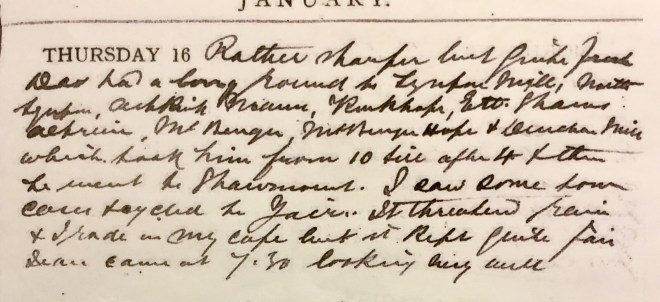 JANUARY.
THURSDAY 16 Rather sharper but quite fresh
had a long round to Mill, North
, Kirkhope, Ett. Shaws
, Mt Benger, Mt Benger Hope & Deuchar Mill
which took him from 10 till after 4 & then
he went to Shawmount. I saw some town
cases & cycled to Yair. It threatened rain
& I rode in my cape but it kept quite fair
came at 7.30 looking very well